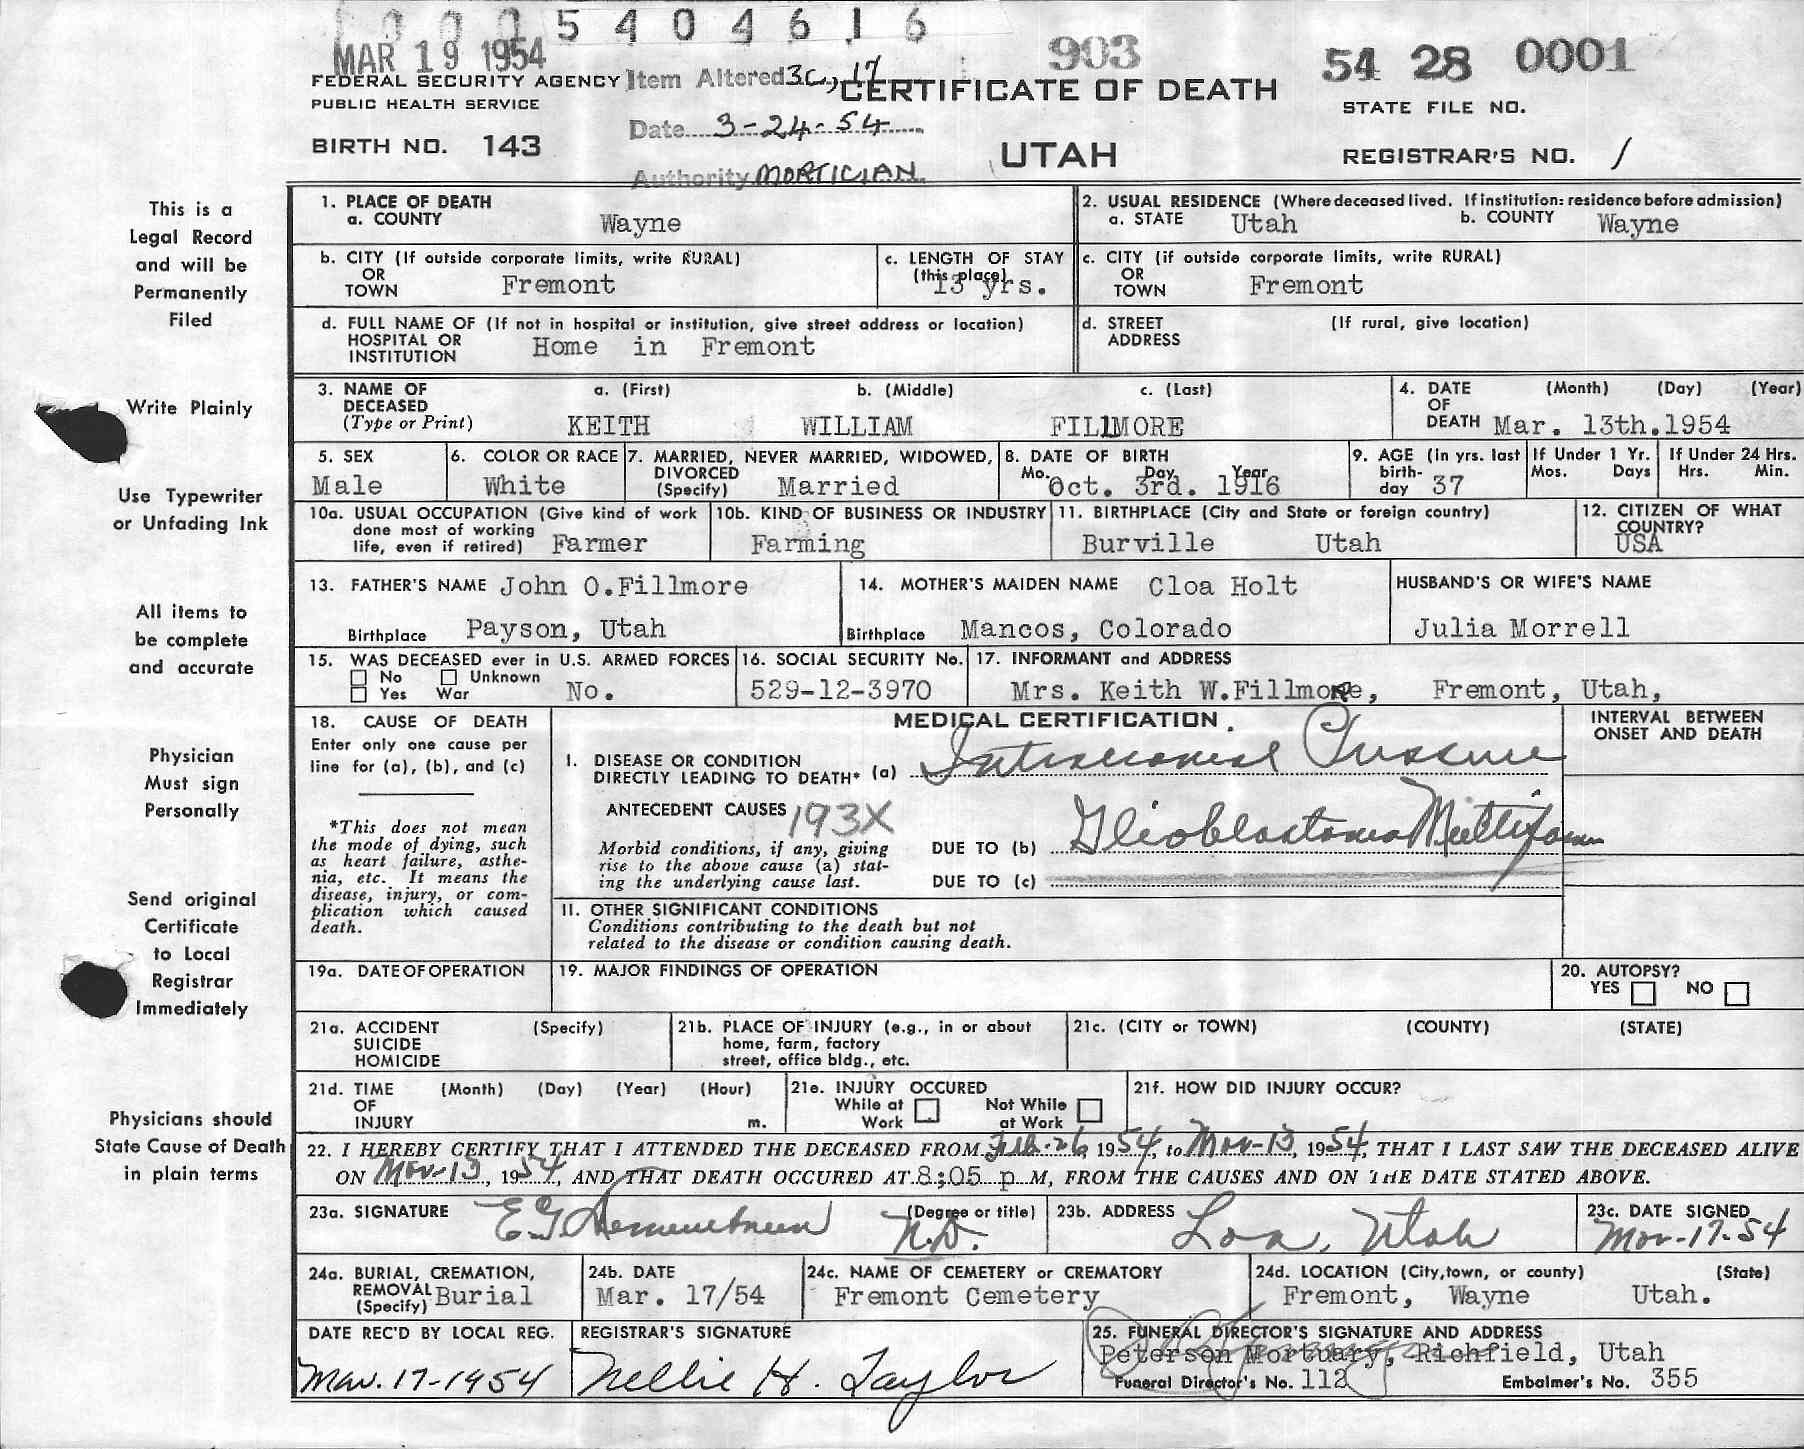 0 0 0 5 4 0 4 6 1 6
MAR 19 1954
903
54 28 0001
FEDERAL SECURITY AGENCY
Item Altered 3c, 17
CERTIFICATE OF DEATH
STATE FILE NO.
PUBLIC HEALTH SERVICE
Date 3-24-54
BIRTH NO. 143
UTAH
REGISTRAR'S NO. 1
Authority MORTICIAN
This is a
Legal Record
and will be
Permanently
Filed
Write Plainly
Use Typewriter
or Unfading Ink
All items to
be complete
and accurate
Physician
Must sign
Personally
Send original
Certificate
to Local
Registrar
Immediately
Physicians should
State Cause of Death
in plain terms
1. PLACE OF DEATH
a. COUNTY Wayne
2. USUAL RESIDENCE (Where deceased lived. If institution: residence before admission)
a. STATE Utah b. COUNTY Wayne
b. CITY (If outside corporate limits, write RURAL)
OR
TOWN Fremont
c. LENGTH OF STAY
(this place)
13 yrs.
c. CITY (if outside corporate limits, write RURAL)
OR
TOWN Fremont
d. FULL NAME OF (If not in hospital or institution, give street address or location)
HOSPITAL OR
INSTITUTION Home in Fremont
d. STREET (If rural, give location)
ADDRESS
3. NAME OF a. (First) b. (Middle) c. (Last)
DECEASED
(Type or Print) KEITH WILLIAM FILlMORE
4. DATE (Month) (Day) (Year)
OF
DEATH Mar. 13th.1954
5. SEX
Male
6. COLOR OR RACE
White
7. MARRIED, NEVER MARRIED, WIDOWED,
DIVORCED
(Specify) Married
8. DATE OF BIRTH
Mo. Day Year
Oct. 3rd. 1916
9. AGE (In yrs. last
birth-
day 37
If Under 1 Yr.
Mos. Days
If Under 24 Hrs.
Hrs. Min.
10a. USUAL OCCUPATION (Give kind of work
done most of working
life, even if retired) Farmer
10b. KIND OF BUSINESS OR INDUSTRY
Farming
11. BIRTHPLACE (City and State or foreign country)
Burville Utah
12. CITIZEN OF WHAT
COUNTRY?
USA
13. FATHER'S NAME John O.Fillmore
Birthplace Payson, Utah
14. MOTHER'S MAIDEN NAME Cloa Holt
Birthplace Mancos, Colorado
HUSBAND'S OR WIFE'S NAME
Julia Morrell
15. WAS DECEASED ever in U.S. ARMED FORCES
No Unknown
Yes War No.
16. SOCIAL SECURITY No.
529-12-3970
17. INFORMANT and ADDRESS
Mrs. Keith W.Fillmore, Fremont, Utah,
18. CAUSE OF DEATH
Enter only one cause per
line for (a), (b), and (c)
*This does not mean
the mode of dying, such
as heart failure, asthe-
nia, etc. It means the
disease, injury, or com-
plication which caused
death.
MEDICAL CERTIFICATION.
INTERVAL BETWEEN
ONSET AND DEATH
I. DISEASE OR CONDITION
DIRECTLY LEADING TO DEATH* (a) Intracranial Pressure
ANTECEDENT CAUSES 193X
Morbid conditions, if any, giving
rise to the above cause (a) stat-
ing the underlying cause last.
DUE TO (b) Glioblastoma Multiform
DUE TO (c)
II. OTHER SIGNIFICANT CONDITIONS
Conditions contributing to the death but not
related to the disease or condition causing death.
19a. DATE OF OPERATION
19. MAJOR FINDINGS OF OPERATION
20. AUTOPSY?
YES NO
21a. ACCIDENT (Specify)
SUICIDE
HOMICIDE
21b. PLACE OF INJURY (e.g., in or about
home, farm, factory
street, office bldg., etc.
21c. (CITY or TOWN) (COUNTY) (STATE)
21d. TIME (Month) (Day) (Year) (Hour)
OF
INJURY m.
21e. INJURY OCCURED
While at Not While
Work at Work
21f. HOW DID INJURY OCCUR?
22. I HEREBY CERTIFY THAT I ATTENDED THE DECEASED FROM Feb-26, 1954, to Mar-13, 1954, THAT I LAST SAW THE DECEASED ALIVE
ON Mar-13, 1954, AND THAT DEATH OCCURED AT 8:05 p M, FROM THE CAUSES AND ON THE DATE STATED ABOVE.
23a. SIGNATURE E G (Degree or title)
23b. ADDRESS Loa, Utah
23c. DATE SIGNED
Mar-17-54
24a. BURIAL, CREMATION,
REMOVAL
(Specify) Burial
24b. DATE
Mar. 17/54
24c. NAME OF CEMETERY or CREMATORY
Fremont Cemetery
24d. LOCATION (City,town, or county) (State)
Fremont, Wayne Utah.
DATE REC'D BY LOCAL REG.
Mar. 17-1954
REGISTRAR'S SIGNATURE
Nellie H. Taylor
25. FUNERAL DIRECTOR'S SIGNATURE AND ADDRESS
Peterson Mortuary, Richfield, Utah
Funeral Director's No. 112 Embalmer's No. 355